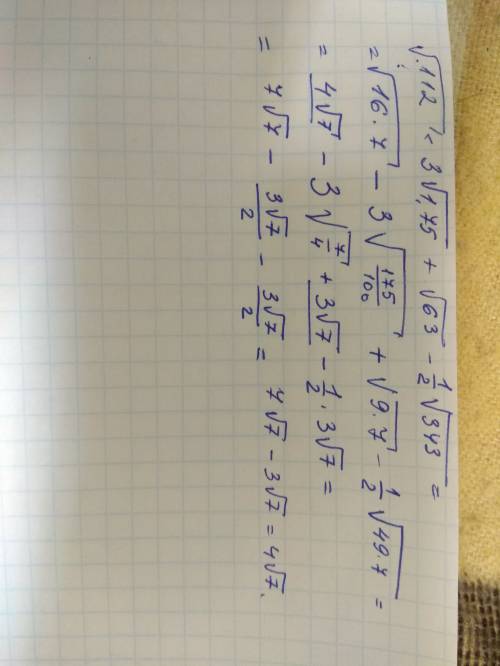 √112 - 3√1,75 + √63 - 1/2 √343 =
= √16·7 - 3√175/100 + √9·7 - 1/2 √49·7 =
= 4√7 - 3√7/4 + 3√7 - 1/2 · 3√7 =
= 7√7 - 3√7/2 - 3√7/2 = 7√7 - 3√7 = 4√7.